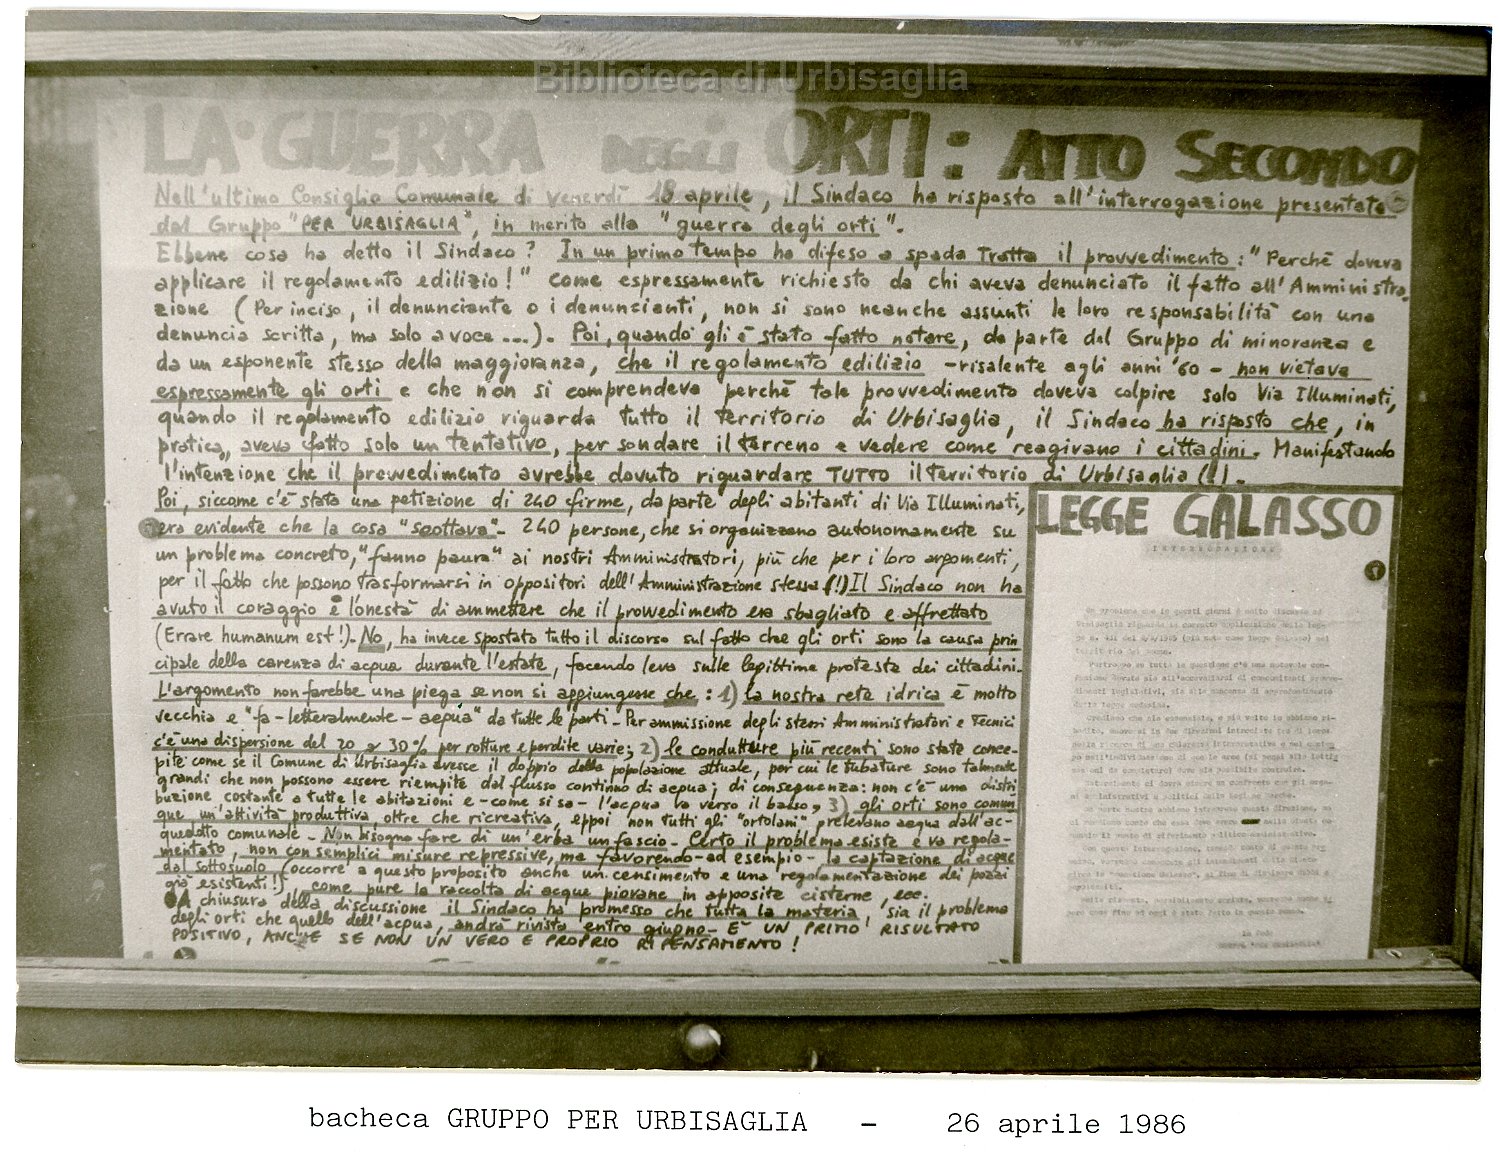 Biblioteca di Urbisaglia
LA GUERRA DEGLI ORTI: ATTO SECONDO
Nell'ultimo Consiglio Comunale di venerdì 18 aprile, il Sindaco ha risposto all'interrogazione presentata
dal Gruppo "PER URBISAGLIA", in merito alla "guerra degli orti".
Ebbene cosa ha detto il Sindaco? In un primo tempo ha difeso a spada tratta il provvedimento: "Perchè doveva
applicare il regolamento edilizio!" come espressamente richiesto da chi aveva denunciato il fatto all'Amministra
zione (Per inciso, il denunciante o i denuncianti, non si sono neanche assunti le loro responsabilità con una
denuncia scritta, ma solo a voce ...). Poi, quando gli è stato fatto notare, da parte del Gruppo di minoranza e
da un esponente stesso della maggioranza, che il regolamento edilizio - risalente agli anni '60 - non vietava
espressamente gli orti e che non si comprendeva perchè tale provvedimento doveva colpire solo Via Illuminati,
quando il regolamento edilizio riguarda tutto il territorio di Urbisaglia, il Sindaco ha risposto che, in
pratica, aveva fatto solo un tentativo, per sondare il terreno e vedere come reagivano i cittadini. Manifestando
l'intenzione che il provvedimento avrebbe dovuto riguardare TUTTO il territorio di Urbisaglia (!).
Poi, siccome c'è stata una petizione di 240 firme, da parte degli abitanti di Via Illuminati,
era evidente che la cosa "scottava". 240 persone, che si organizzano autonomamente su
un problema concreto, "fanno paura" ai nostri Amministratori, più che per i loro argomenti,
per il fatto che possono trasformarsi in oppositori dell'Amministrazione stessa (!) Il Sindaco non ha
avuto il coraggio e l'onestà di ammettere che il provvedimento era sbagliato e affrettato
(Errare humanum est!). No, ha invece spostato tutto il discorso sul fatto che gli orti sono la causa prin
cipale della carenza di acqua durante l'estate, facendo leva sulle legittime proteste dei cittadini.
L'argomento non farebbe una piega se non si aggiungesse che: 1) la nostra rete idrica è molto
vecchia e "fa - letteralmente - acqua" da tutte le parti. Per ammissione degli stessi Amministratori e Tecnici
c'è una dispersione del 20 o 30% per rotture e perdite varie; 2) le condutture più recenti sono state conce-
pite come se il Comune di Urbisaglia avesse il doppio della popolazione attuale, per cui le tubature sono talmente
grandi che non possono essere riempite dal flusso continuo di acqua; di conseguenza: non c'è una distri
buzione costante a tutte le abitazioni e - come si sa - l'acqua va verso il basso; 3) gli orti sono comun
que un'attività produttiva oltre che ricreativa, eppoi non tutti gli "ortolani" prelevano acqua dall'ac-
quedotto comunale. Non bisogna fare di un'erba un fascio. Certo il problema esiste e va regola-
mentato, non con semplici misure repressive, ma favorendo - ad esempio - la captazione di acque
dal sottosuolo (occorre a questo proposito anche un censimento e una regolamentazione dei pozzi
già esistenti!), come pure la raccolta di acque piovane in apposite cisterne, ecc.
A chiusura della discussione il Sindaco ha promesso che tutta la materia, sia il problema
degli orti che quello dell'acqua, andrà rivista entro giugno. E' UN PRIMO RISULTATO
POSITIVO, ANCHE SE NON UN VERO E PROPRIO RIPENSAMENTO!
LEGGE GALASSO
INTERROGAZIONE
Un problema che in questi giorni è molto discusso ad
Urbisaglia riguarda la corretta applicazione della leg-
bacheca GRUPPO PER URBISAGLIA - 26 aprile 1986